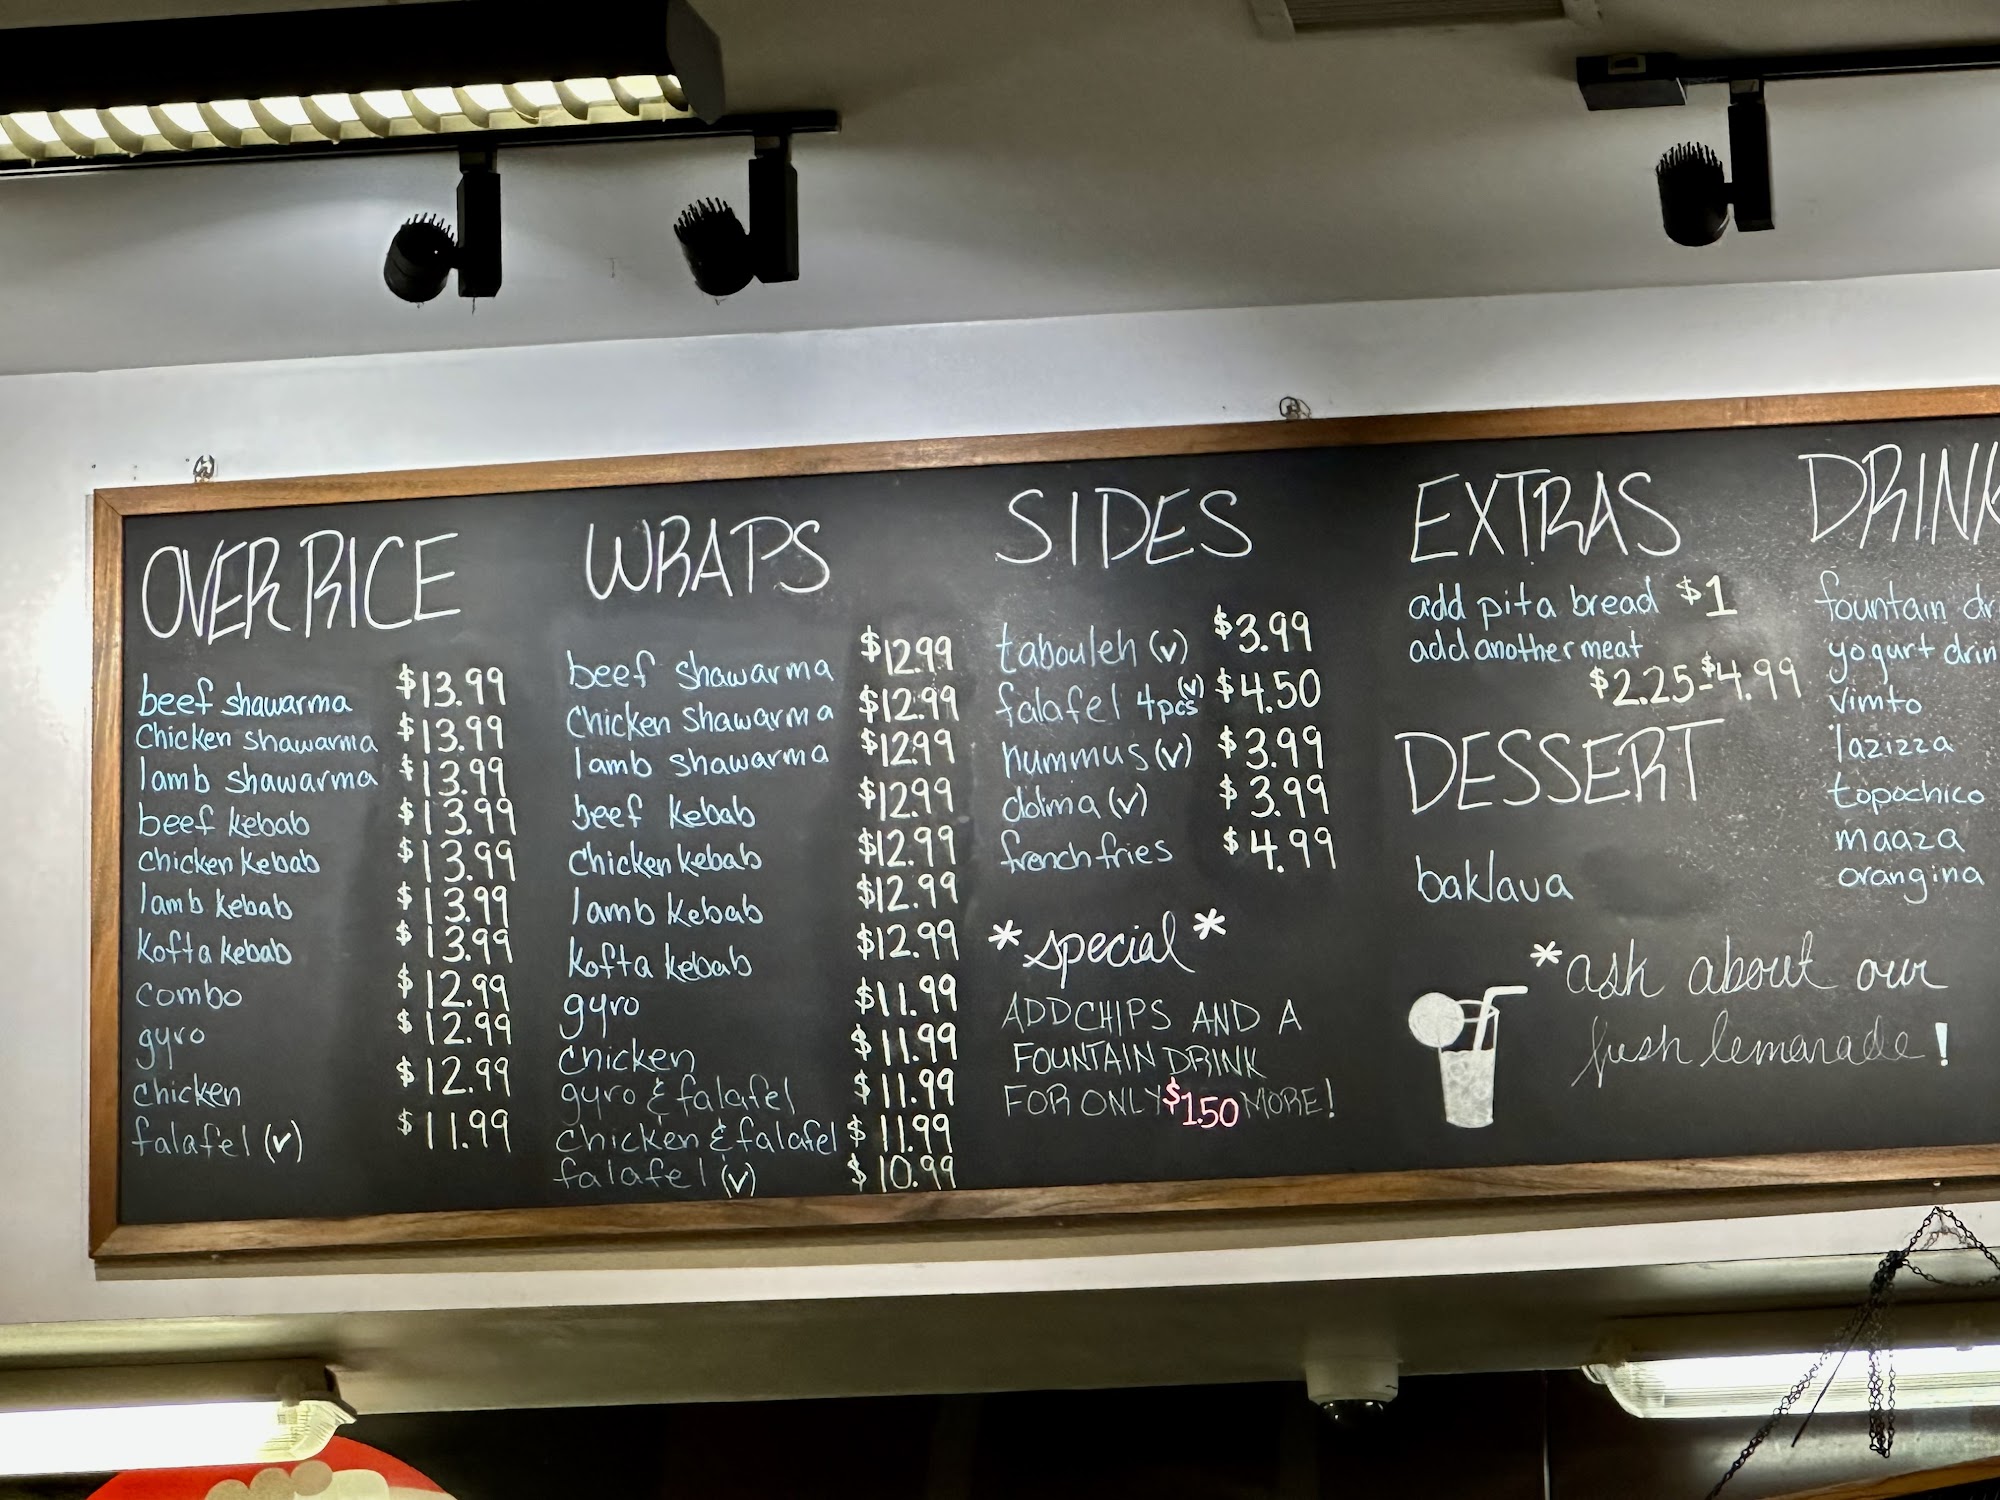 OVER RICE
beef shawarma $13.99
chicken shawarma $13.99
lamb shawarma $13.99
beef kebab $13.99
chicken kebab $13.99
lamb kebab $13.99
kofta kebab $13.99
combo $12.99
gyro $12.99
chicken $12.99
falafel (v) $11.99
WRAPS
beef shawarma $12.99
chicken shawarma $12.99
lamb shawarma $12.99
beef kebab $12.99
chicken kebab $12.99
lamb kebab $12.99
kofta kebab $12.99
gyro $11.99
chicken $11.99
gyro & falafel $11.99
chicken & falafel $11.99
falafel (v) $10.99
SIDES
tabouleh (v) $3.99
falafel 4pcs (v) $4.50
hummus (v) $3.99
dolma (v) $3.99
french fries $4.99
*special*
ADD CHIPS AND A
FOUNTAIN DRINK
FOR ONLY $1.50 MORE!
EXTRAS
add pita bread $1
add another meat
$2.25-$4.99
DESSERT
baklava
*ask about our
fresh lemonade!
DRINK
fountain dr
yogurt drin
vimto
lazizza
topochico
maaza
orangina